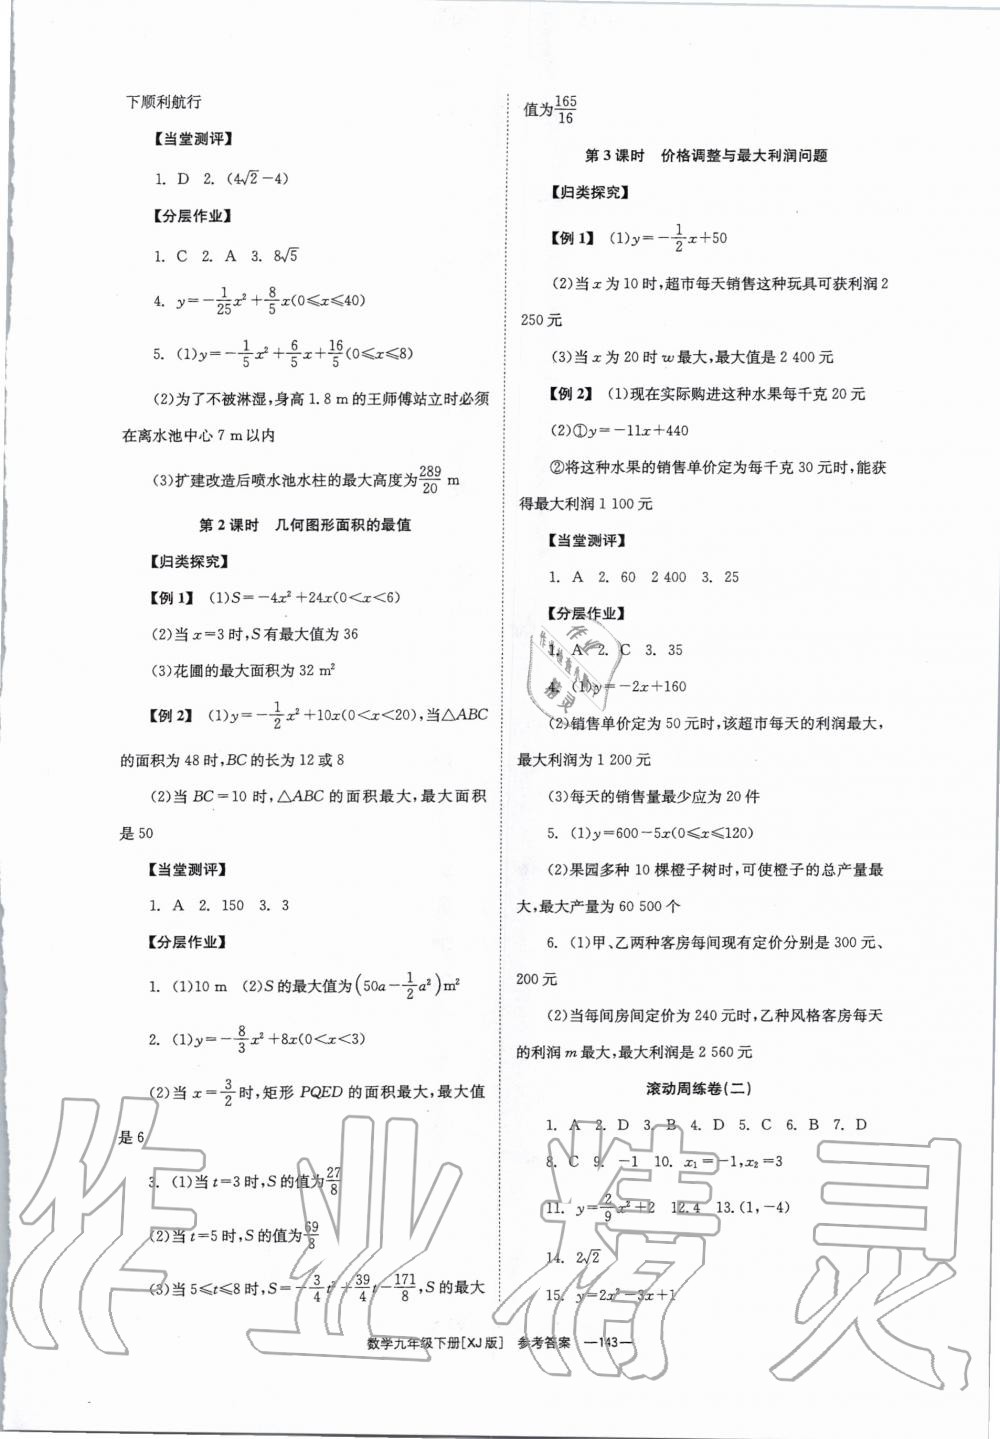 下顺利航行
【当堂测评】
1. D 2. (4√2−4)
【分层作业】
1. C 2. A 3. 8√5
4. y=−1/25x²+8/5x(0⩽x⩽40)
5. (1)y=−1/5x²+6/5x+16/5(0⩽x⩽8)
(2)为了不被淋湿,身高1.8 m的王师傅站立时必须
在离水池中心7 m以内
(3)扩建改造后喷水池水柱的最大高度为289/20 m
第2课时 几何图形面积的最值
【归类探究】
【例1】 (1)S=−4x²+24x(0<x<6)
(2)当x=3时,S有最大值为36
(3)花圃的最大面积为32 m²
【例2】 (1)y=−1/2x²+10x(0<x<20),当△ABC
的面积为48时,BC的长为12或8
(2)当BC=10时,△ABC的面积最大,最大面积
是50
【当堂测评】
1. A 2. 150 3. 3
【分层作业】
1. (1)10 m (2)S的最大值为(50a−1/2a²)m²
2. (1)y=−8/3x²+8x(0<x<3)
(2)当x=3/2时,矩形PQED的面积最大,最大值
是6
3. (1)当t=3时,S的值为27/8
(2)当t=5时,S的值为69/8
(3)当5⩽t⩽8时,S=−3/4t²+39/4t−171/8,S的最大
值为165/16
第3课时 价格调整与最大利润问题
【归类探究】
【例1】 (1)y=−1/2x+50
(2)当x为10时,超市每天销售这种玩具可获利润2
250元
(3)当x为20时w最大,最大值是2 400元
【例2】 (1)现在实际购进这种水果每千克20元
(2)①y=−11x+440
②将这种水果的销售单价定为每千克30元时,能获
得最大利润1 100元
【当堂测评】
1. A 2. 60 2 400 3. 25
【分层作业】
1. A 2. C 3. 35
4. (1)y=−2x+160
(2)销售单价定为50元时,该超市每天的利润最大,
最大利润为1 200元
(3)每天的销售量最少应为20件
5. (1)y=600−5x(0⩽x⩽120)
(2)果园多种10棵橙子树时,可使橙子的总产量最
大,最大产量为60 500个
6. (1)甲、乙两种客房每间现有定价分别是300元、
200元
(2)当每间房间定价为240元时,乙种风格客房每天
的利润m最大,最大利润是2 560元
滚动周练卷(二)
1. A 2. D 3. B 4. D 5. C 6. B 7. D
8. C 9. −1 10. x₁=−1,x₂=3
11. y=2/9x²+2 12. 4 13. (1,−4)
14. 2√2
15. y=2x²−3x+1
数学九年级下册[XJ版] 参考答案 —143—
作业精灵